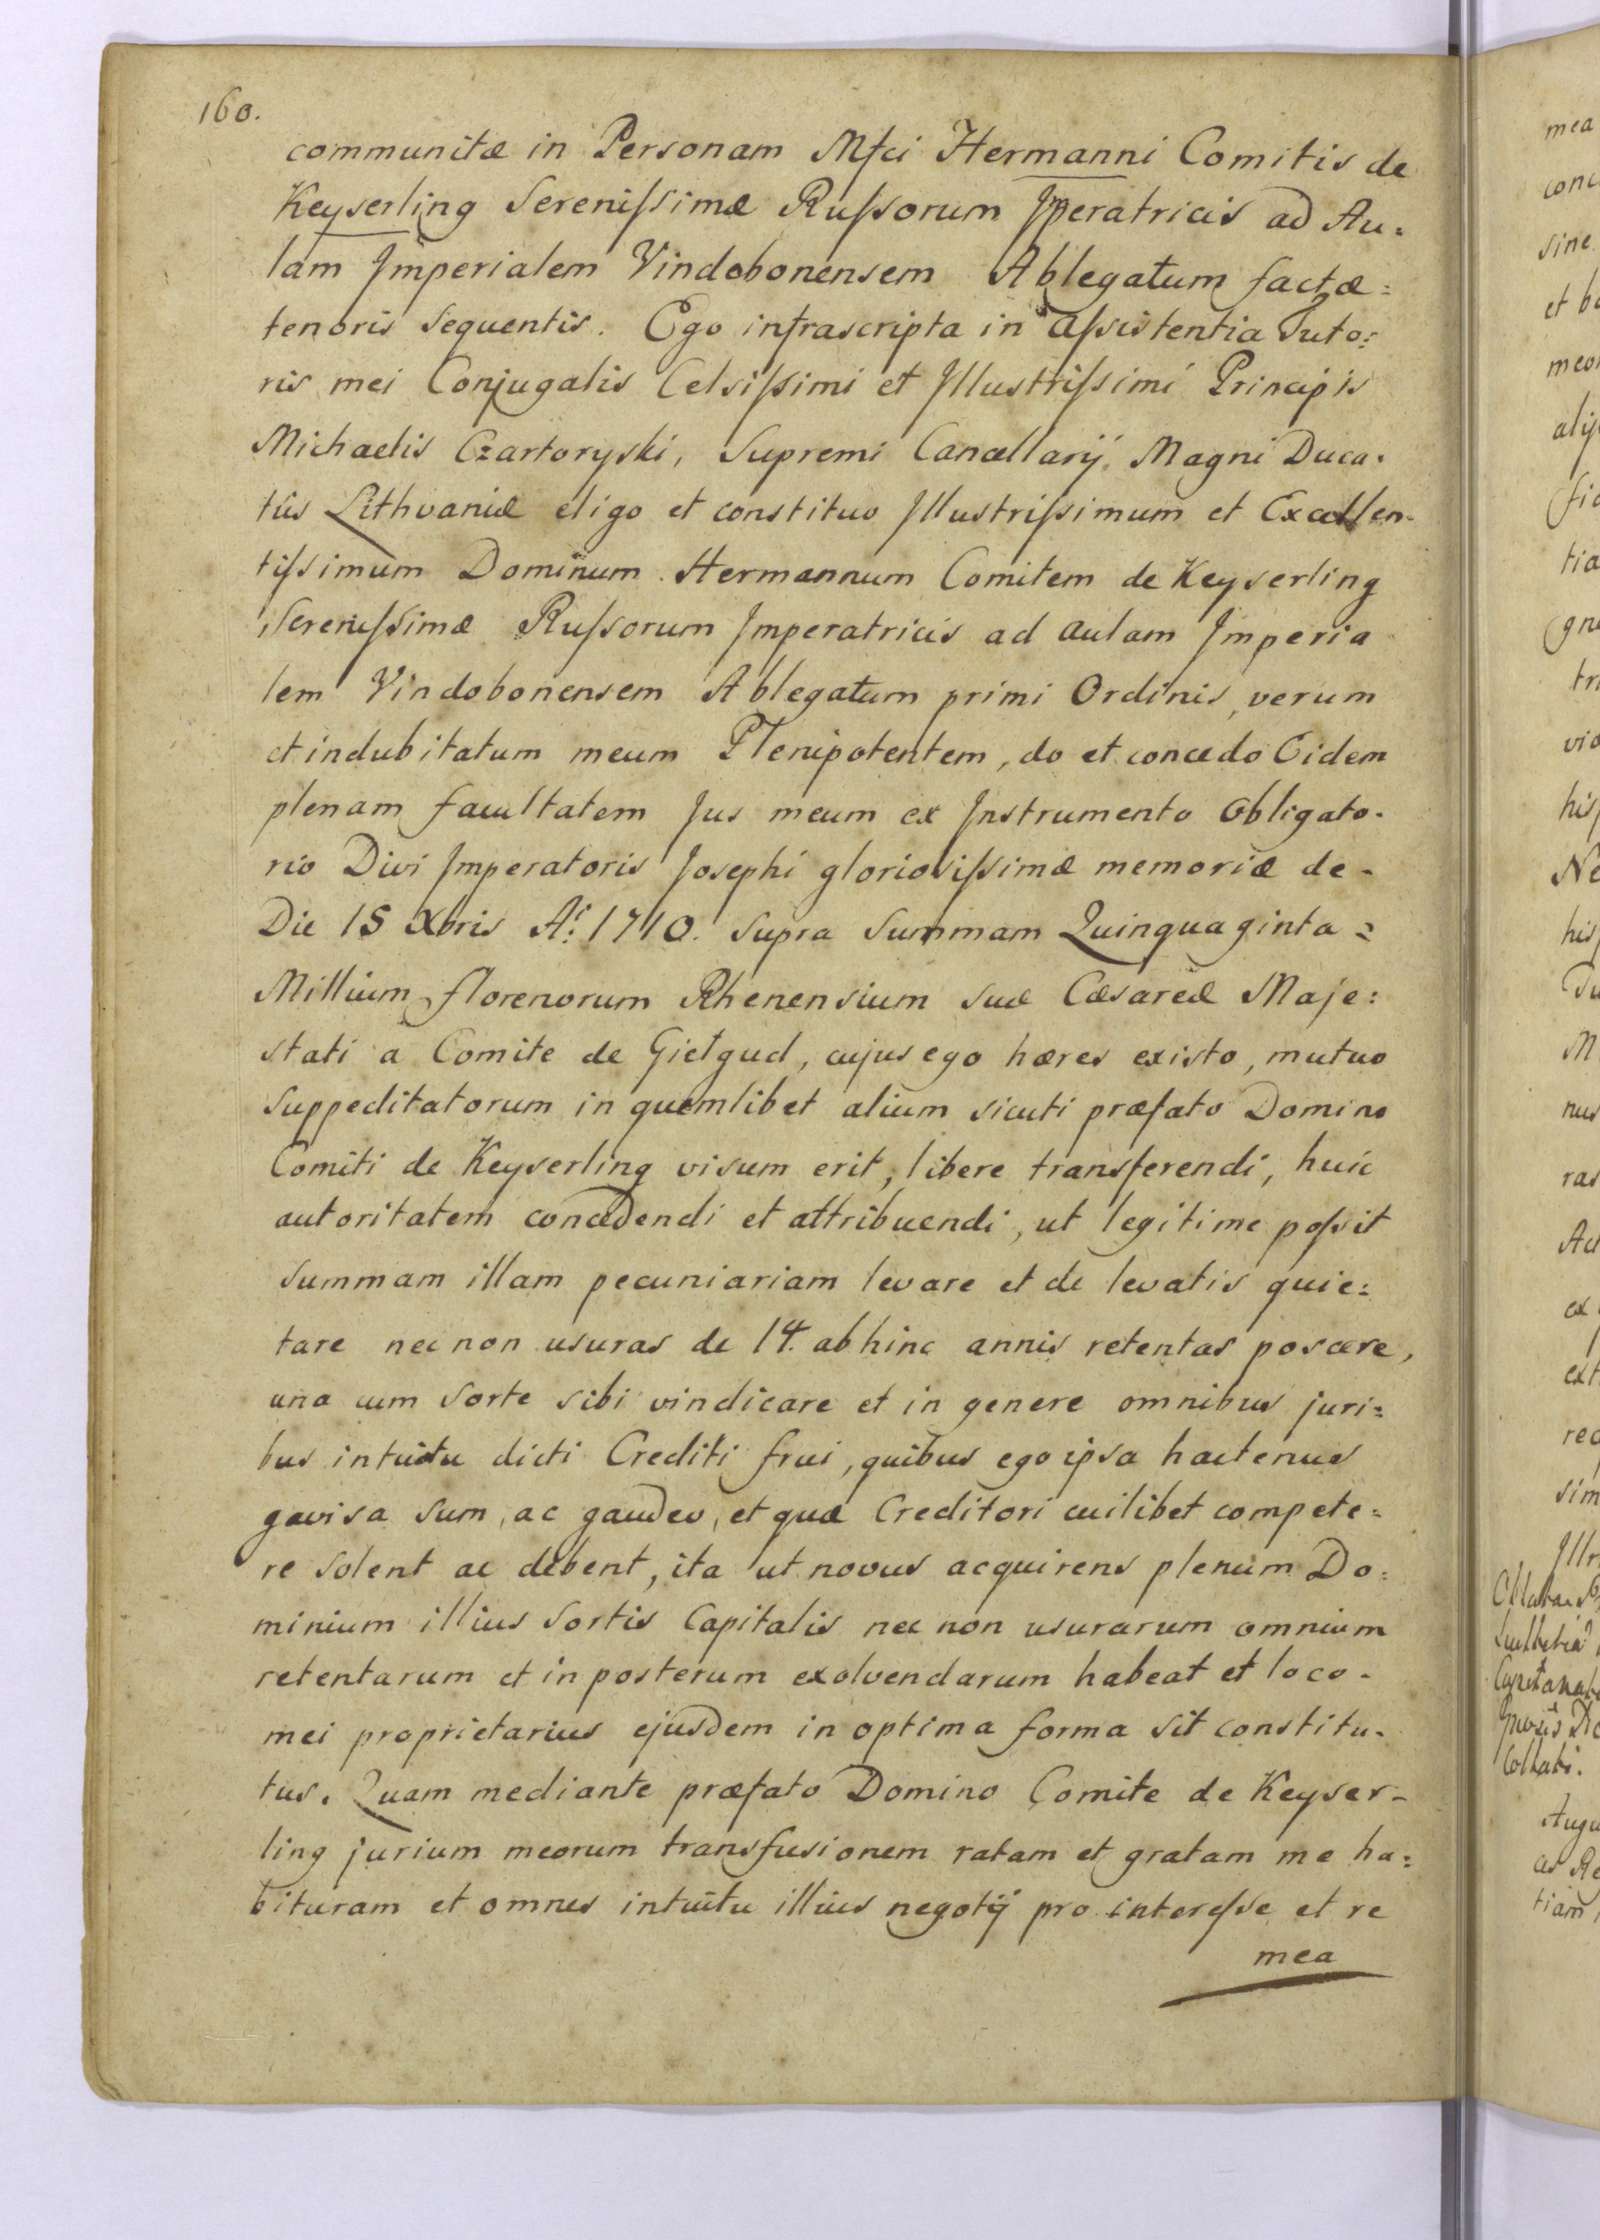 160.
communitæ in Personam Mfci Hermanni Comitis de
Keyserling Serenissimæ Russorum Imperatricis ad Au=
lam Imperialem Vindobonensem Ablegatum factæ=
tenoris sequentis. Ego infrascripta in assistentia Tuto=
ris mei Conjugalis Celsissimi et Illustrissimi Principis
Michaelis Czartoryski, Supremi Cancellarij Magni Duca=
tûs Lithvaniæ eligo et constituo Illustrissimum et Excellen=
tissimum Dominum Hermannum Comitem de Keyserling
Serenissimæ Russorum Imperatricis ad aulam Imperia
lem Vindobonensem Ablegatum primi Ordinis, verum
et indubitatum meum Plenipotentem, do et concedo Eidem
plenam facultatem Jus meum ex Instrumento Obligato-
rio Divi Imperatoris Josephi gloriosissimæ memoriæ de-
Die 15 Xbris Ai 1710. supra Summam Quinquaginta=
Millium florenorum Rhenensium suæ Cæsareæ Maje=
stati a Comite de Gietgud, cujus ego hæres existo, mutuo
suppeditatorum in quemlibet alium sicuti præfato Domino
Comiti de Keyserling visum erit, libere transferendi, huic
autoritatem concedendi et attribuendi, ut legitime possit
summam illam pecuniariam levare et de levatis quie=
tare nec non usuras de 14. abhinc annis retentas poscere,
una cum sorte sibi vindicare et in genere omnibus juri=
bus intuitu dicti Crediti frui, quibus ego ipsa hactenus
gavisa sum, ac gaudeo, et quæ Creditori cuilibet compete=
re solent ac debent, ita ut novus acquirens plenum Do=
minium illius sortis Capitalis nec non usurarum omnium
retentarum et in posterum exolvendarum habeat et loco-
mei proprietarius ejusdem in optima forma sit constitu-
tus. Quam mediante præfato Domino Comite de Keyser-
ling jurium meorum transfusionem ratam et gratam me ha=
bituram et omnes intuitu illius negotij pro interesse et re
mea